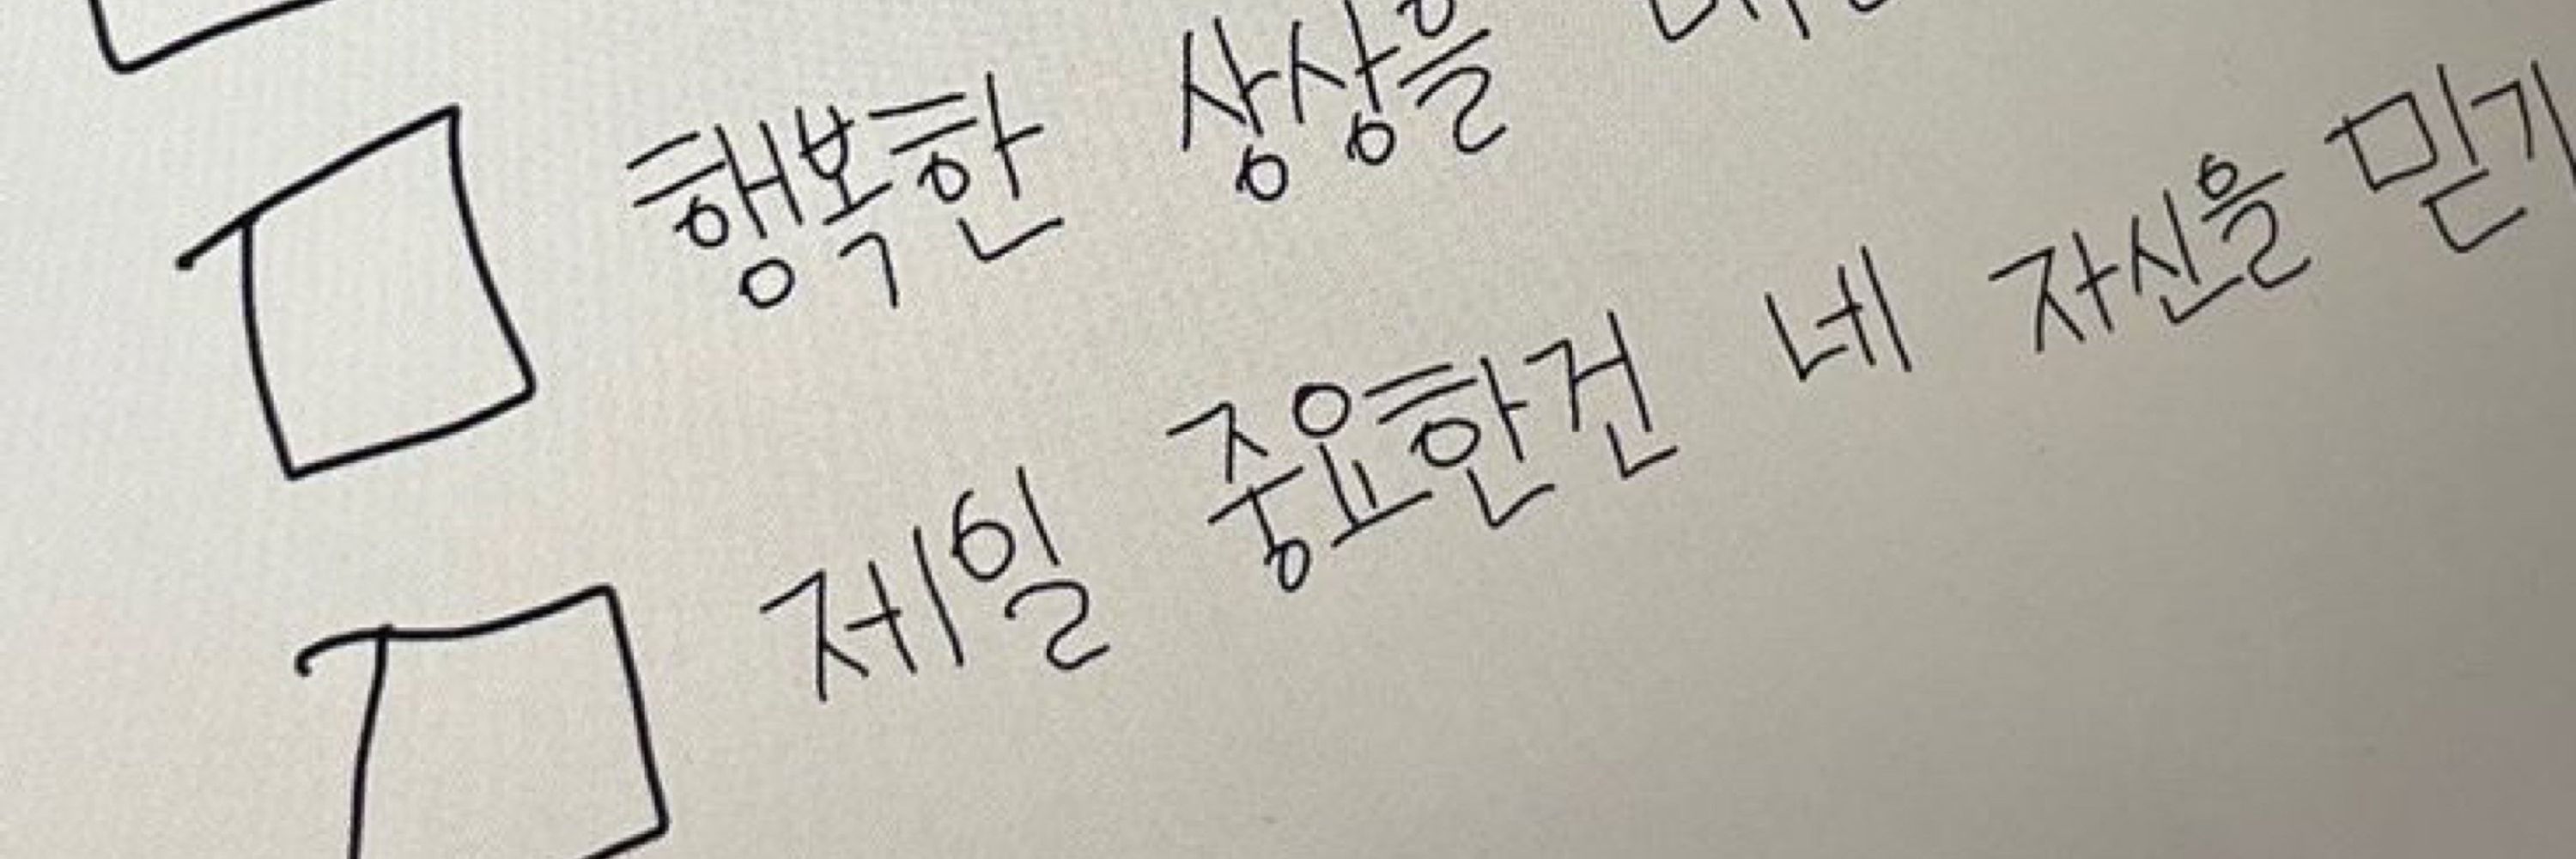 행복한 상상을
제일 중요한건 네 자신을 믿기